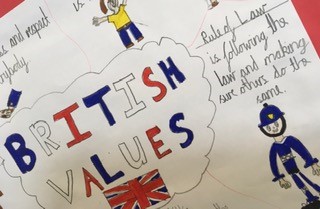 and respect
is.
Rule of Law
is following the
law and making
sure others do the
same.
BRITISH
VALUES